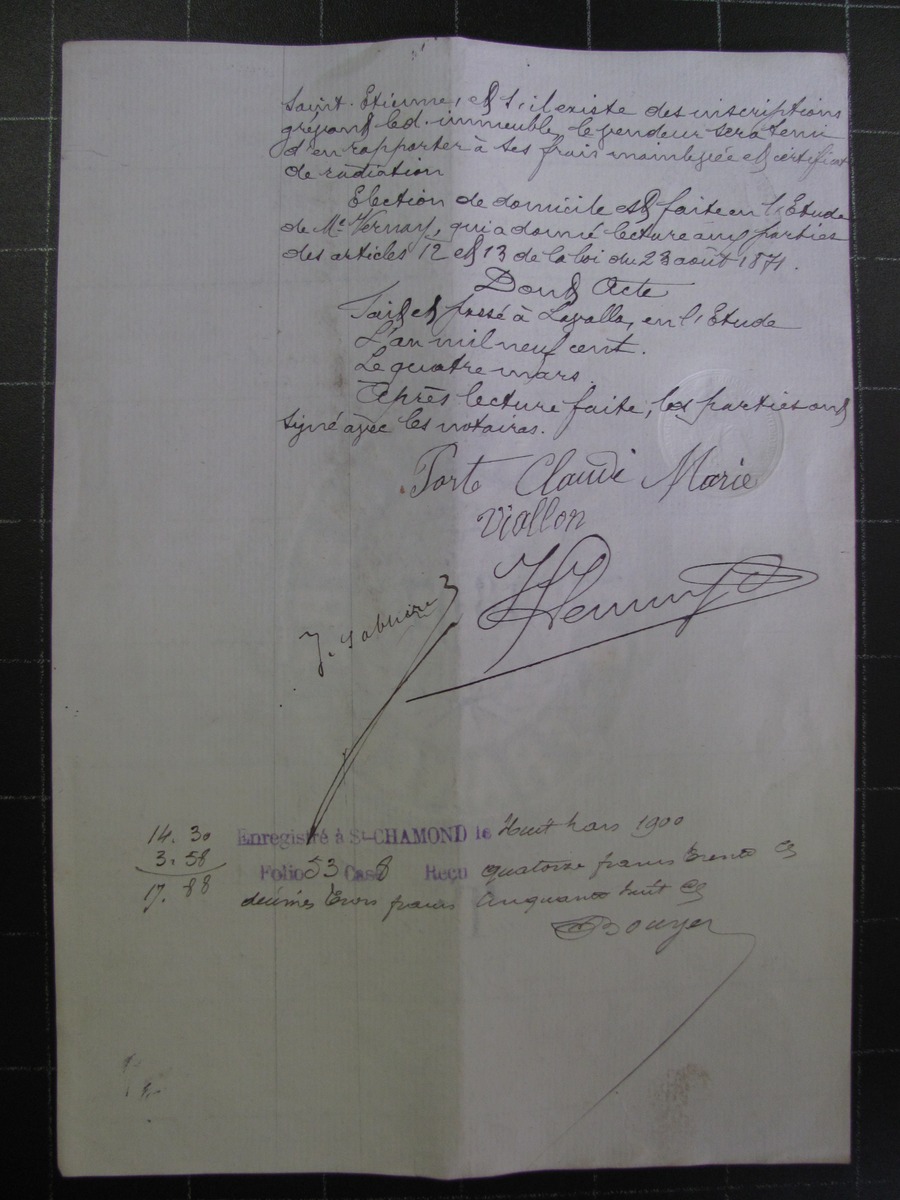 Saint-Etienne, et s'il existe des inscriptions
grévant led. immeuble, le vendeur sera tenu
d'en rapporter à ses frais mainlevée et certificat
de radiation
Election de domicile est faite en l'Etude
de Me Vernay, qui a donné lecture aux parties
des articles 12 et 13 de la loi du 23 août 1871.
Dont Acte
Fait et passé à Lavalla, en l'Etude
L'an mil neuf cent.
Le quatre mars
Après lecture faite, les parties ont
signé avec les notaires.
Claude Marie
Viallon
14. 30
3. 58
17. 88
Enregistré à St-CHAMOND le Huit Mars 1900
Folio 53 Case 8 Reçu quatorze francs trente cs
décimes trois francs cinquante huit cs
Bouyer